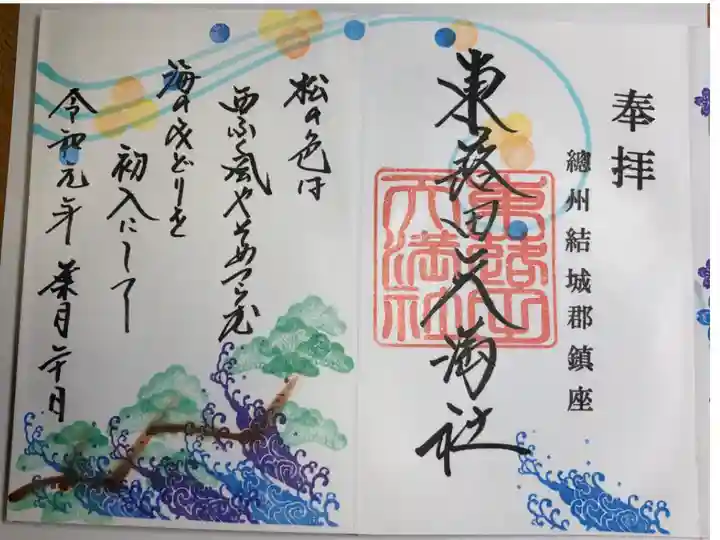 奉拝
總州結城郡鎮座
東蕗田天満社
東蕗田
天満社
松の色は
西ふく風やそめつらむ
海のみどりを
初入にして
令和元年 葉月二十日